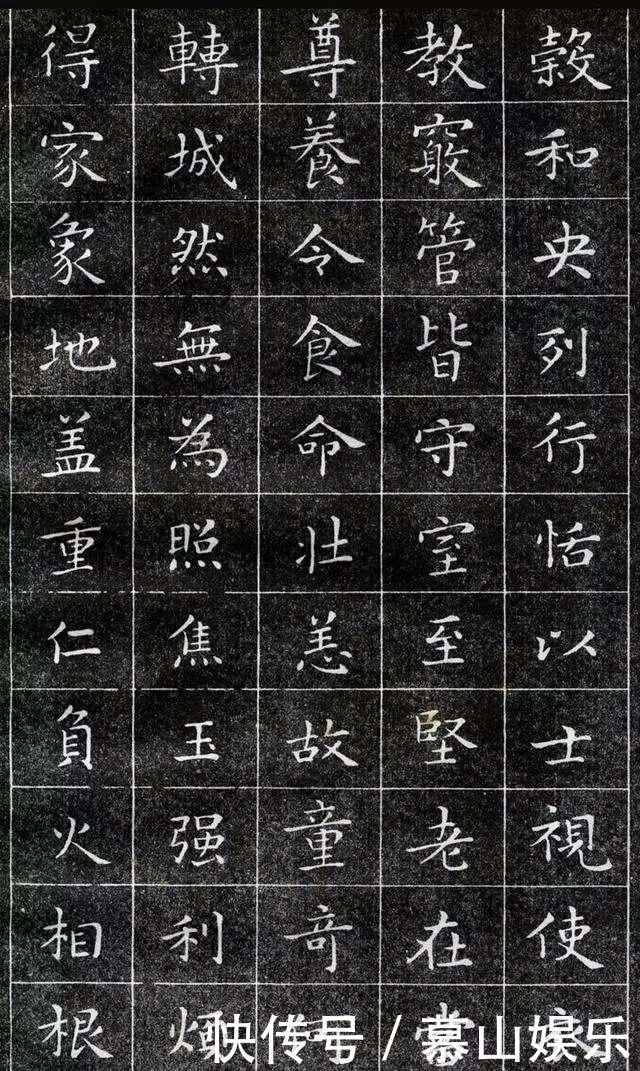 穀和央列行恬以士視使
教竅管皆守室至堅老在
尊養令食命壯恙故童奇
轉城然無為照焦玉强利
得家象地盖重仁負火相根
快传号 / 慕山娱乐